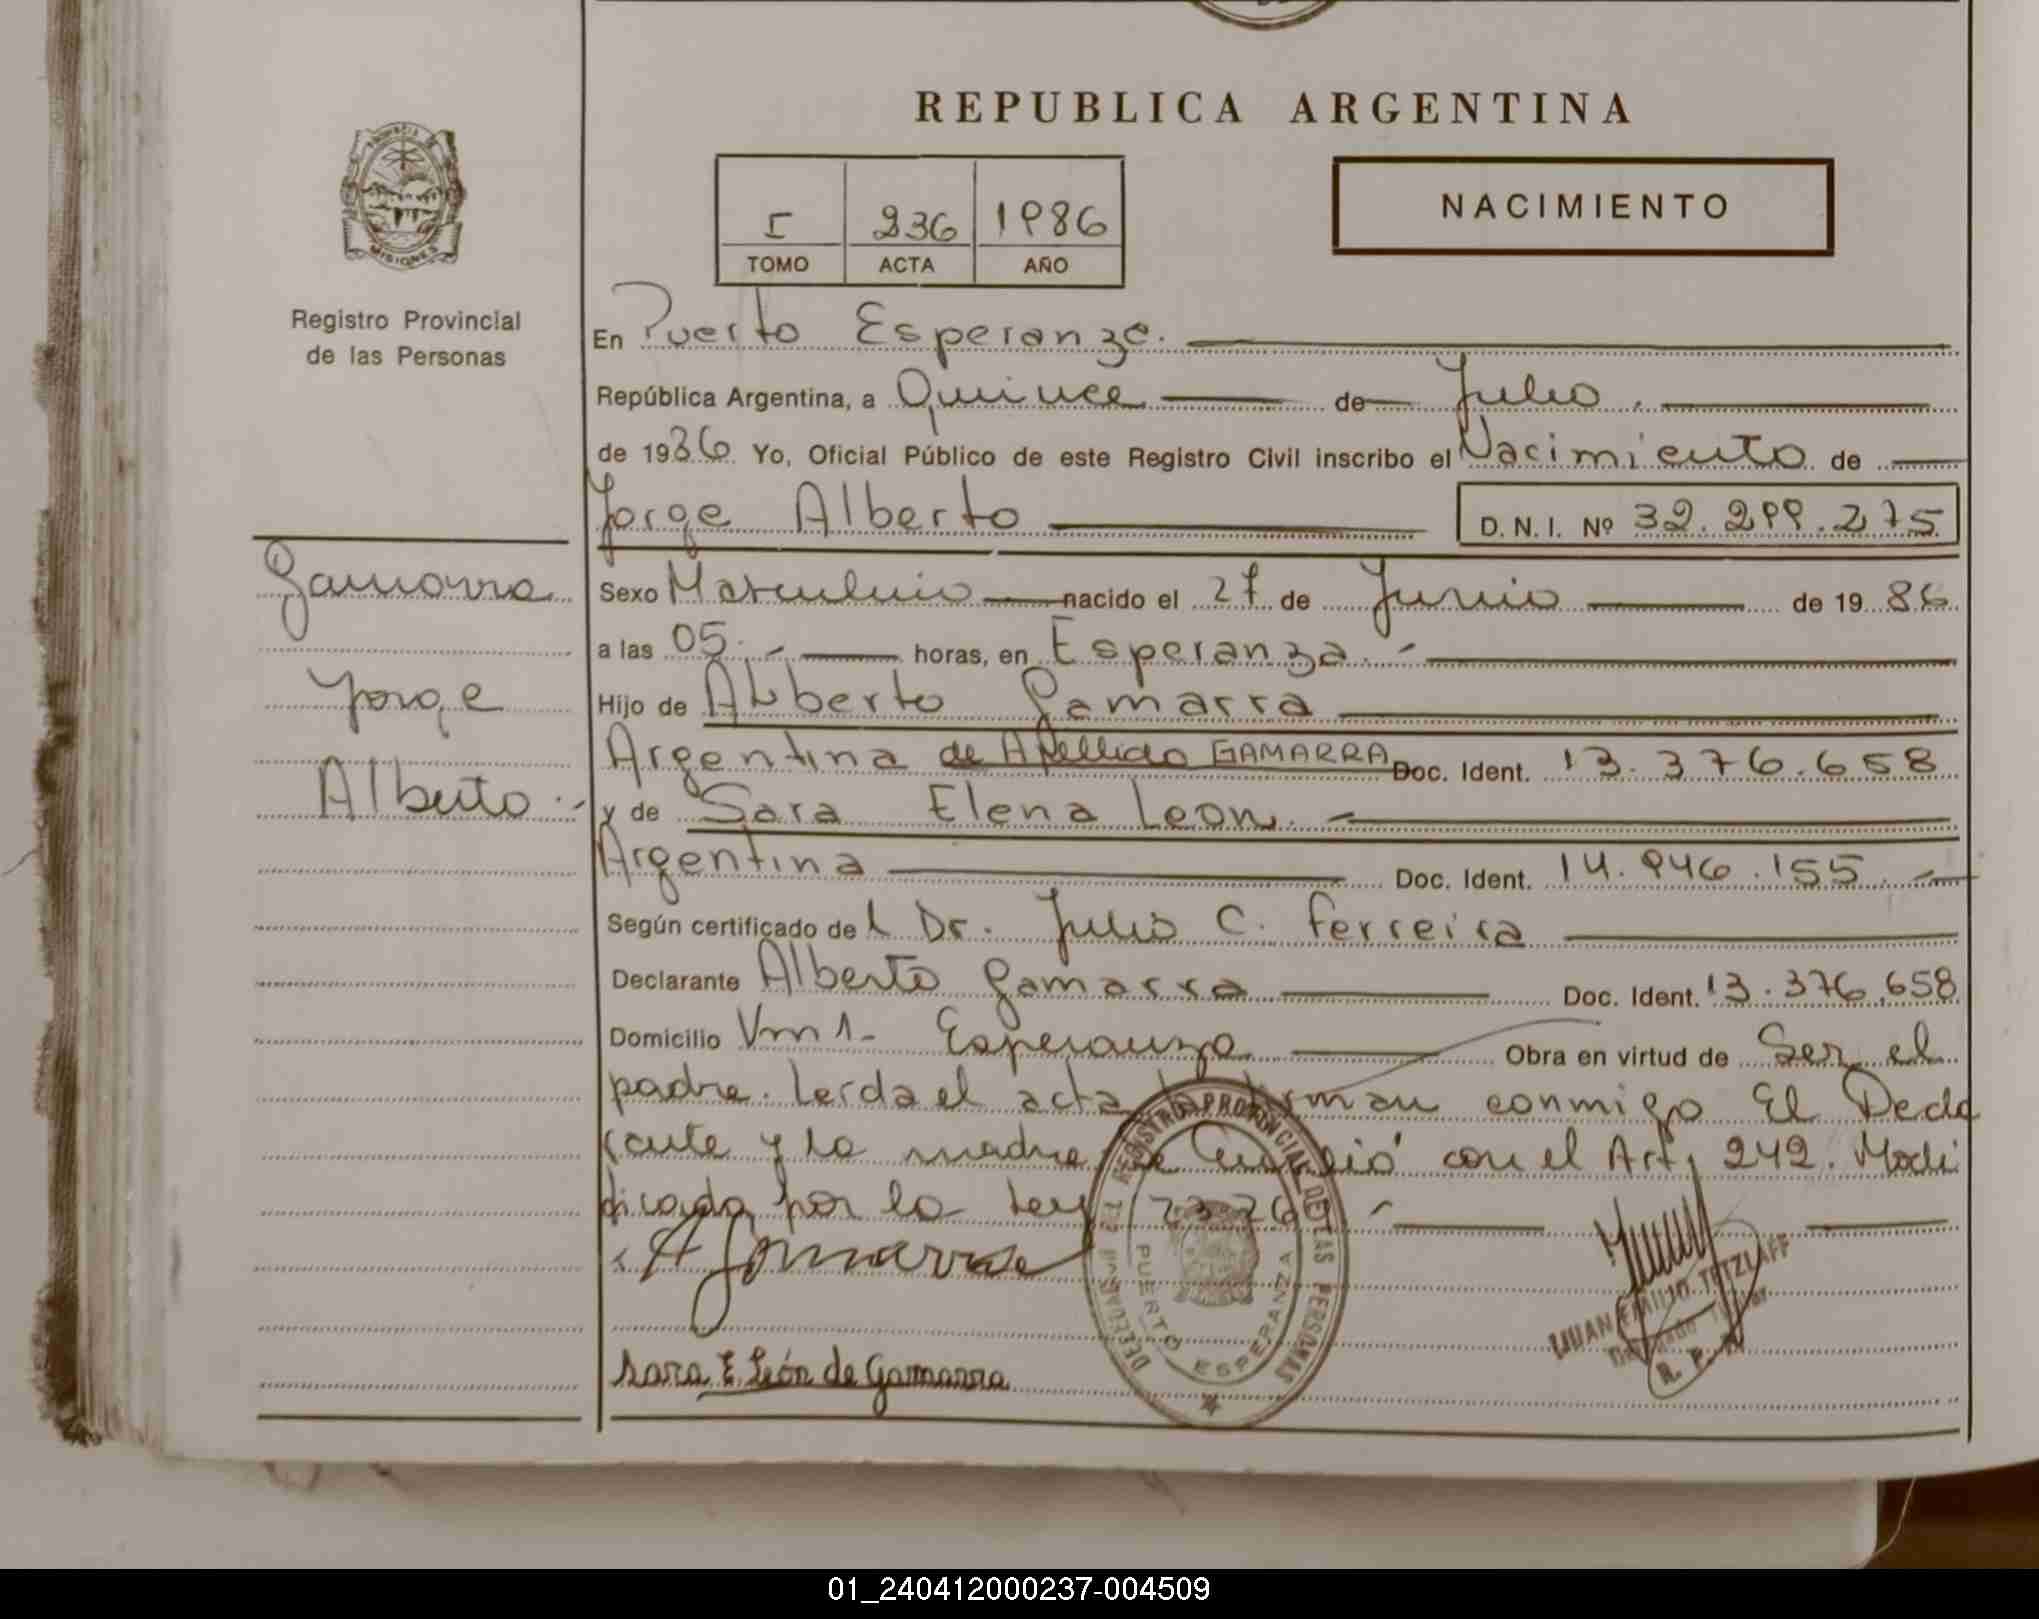 REPUBLICA ARGENTINA
PROVINCIA DE
MISIONES
Registro Provincial
de las Personas
I 236 1986
TOMO ACTA AÑO
NACIMIENTO
En Puerto Esperanza.
República Argentina, a Quince de Julio.
de 1986 Yo, Oficial Público de este Registro Civil inscribo el Nacimiento de
Jorge Alberto D. N. I. Nº 32.299.275
Gamarra
Jorge
Alberto.-
Sexo Masculino nacido el 27 de Junio de 19 86
a las 05.- horas, en Esperanza.-
Hijo de Alberto Gamarra
Argentina de Apellido GAMARRA Doc. Ident. 13.376.658
y de Sara Elena Leon.-
Argentina Doc. Ident. 14.946.155.-
Según certificado del Dr. Julio C. Ferreira
Declarante Alberto Gamarra Doc. Ident. 13.376.658
Domicilio Vm 1- Esperanza Obra en virtud de Ser el
padre. Leída el acta la firman conmigo El Decla
rante y la madre, se cumplió con el Art. 242. Modi
ficado por la Ley 23264.-
A Gamarra
Sara E. León de Gamarra
REGISTRO PROVINCIAL DE LAS PERSONAS
PUERTO ESPERANZA
JUAN EMILIO TETZLAFF
Delegado Titular
R. P. P.
01_240412000237-004509